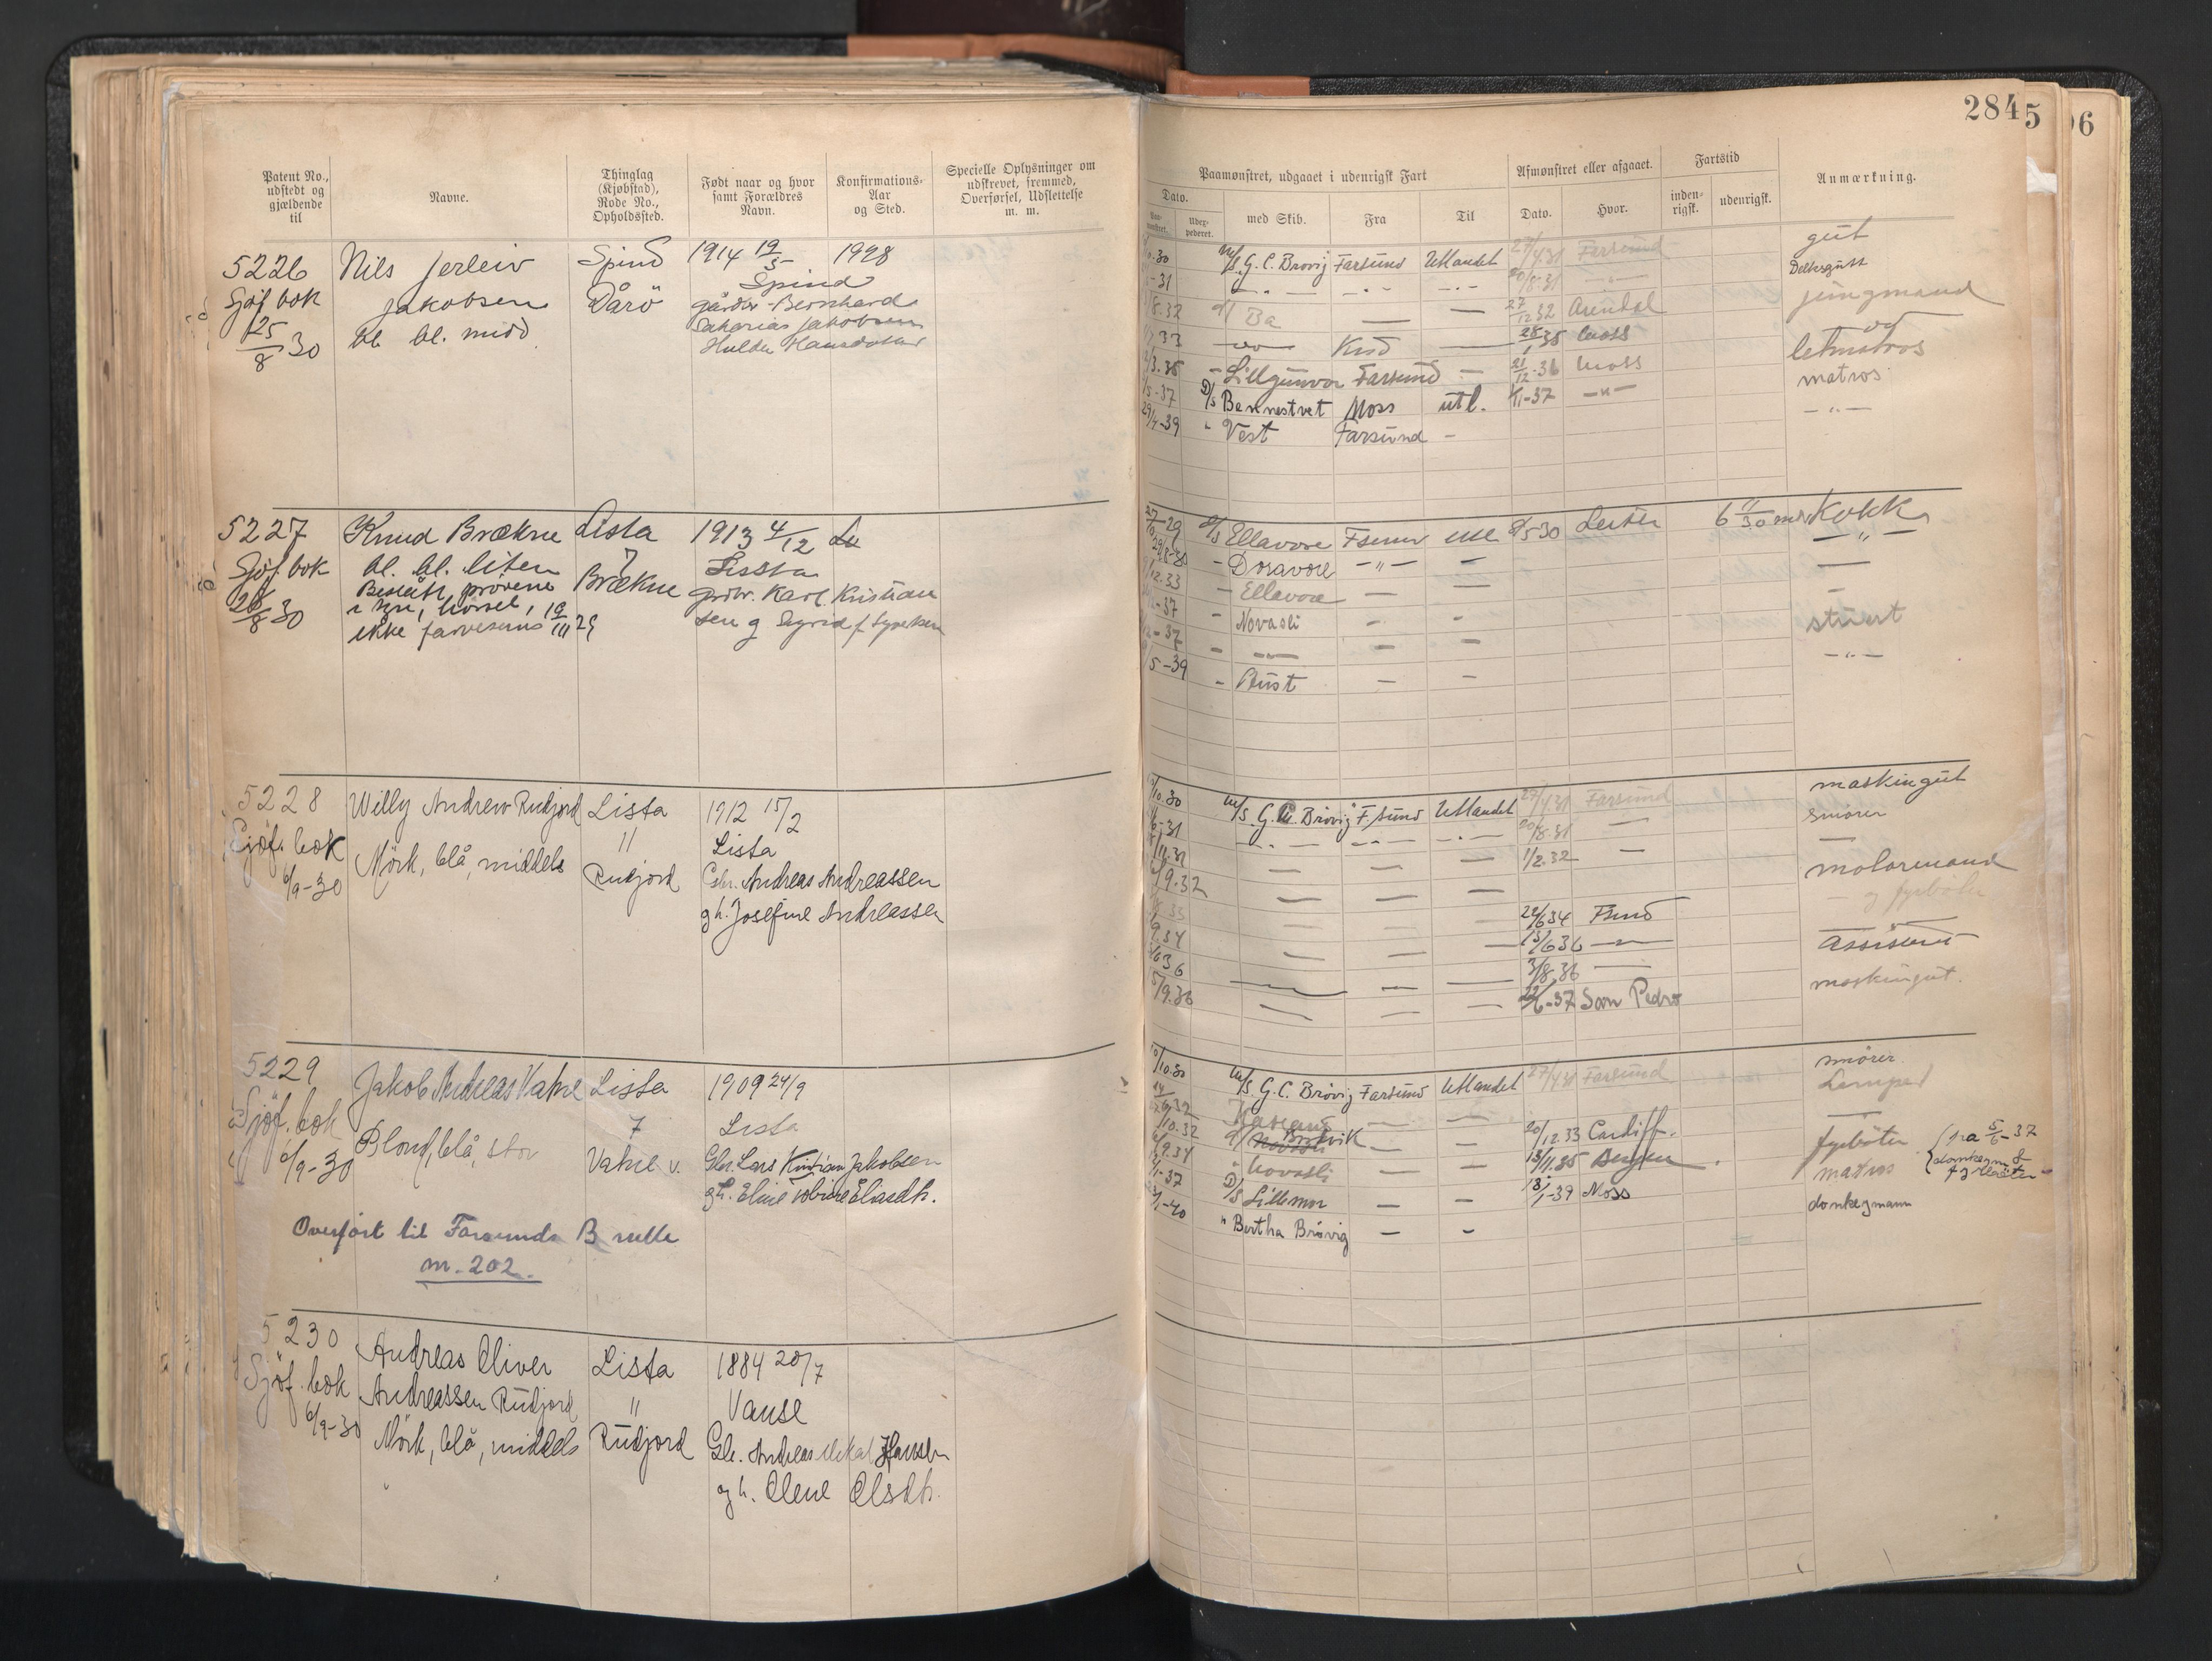 2845
96
Patent No., udstedt og gjældende til
Navne.
Thinglag (Kjøbstad), Rode No., Opholdssted.
Født naar og hvor samt Forældres Navn.
Konfirmations-Aar og Sted.
Specielle Oplysninger om udskrevet, fremmed, Overførsel, Udslettelse m. m.
Paamønstret, udgaaet i udenrigsk Fart
Dato.
med Skib.
Fra
Til
Afmønstret eller afgaaet.
Dato.
Hvor.
Fartstid
inden-rigsk.
udenrigsk.
Anmærkning.
5226 Nils Jerleiv Spind 1914 19/5 1928
Sjöf bok Jakobsen Dårö Spind
25/8 30 bl. bl. midd. gårdbr. Bernhard
Sakarias Jakobsen
Hulda Hansdatter
.30 M/S. G. C. Brovig Farsund Utlandet 27/4.31 Farsund gut
-31 — — — 20/8-31 — Dekksgutt
8.32 Ba — — 27/12 32 Arendal jungmand
33 — Fsd — 28/1 35 Moss
/3.35 - Lillgunvor Farsund — 21/12-36 Moss letmatros
/5-37 D/S Bennestvet Moss utl. /11-37 —"— matros
29/4-39 " Vest Farsund - —"—
5227 Knud Brækne Lista 1913 4/12
Sjöf bok bl. bl. liten 7 Lista
26/8 30 Bestått prövene Brækne grdbr. Karl Kristian
i syn, hörsel,
ikke farvesans 19/III 29 sen g Sigrid f. Syvertsen
27/10-29 D/S Ellavore Fsund utl 8/5 30 Leith 6 11/30 mdr Kokk
29/8-30 - Doravore —"— - —"—
/12.33 - Ellavore — —
-37 - Novasli - - -
/2-37 - —"— - - stuert
/5-39 - Aust - - —"—
5228 Willy Andrew Rudjord Lista 1912 15/2
Sjöf. bok Mörk, blå, middels 11 Lista
6/9-30 Rudjord Gbr. Andreas Andreassen
g h. Josefine Andreassen
/10.30 M/S. G. C. Brövig F.sund Utlandet 27/4 31 Farsund maskingut
/6-31 — — — 20/8.31 — smörer
/11.31 — — — 1/2.32 — —
/9.32 — — — motormand
33 — — — 22/6 34 Fsund og fyrböter
9.34 — — — 15/6 36 — —
/6 36 — — — 3/8.36 — Assistent
5/9.36 — — — 22/6-37 San Pedro maskingut.
5229 Jakob Andreas Vatne Lista 1909 24/9
Sjöf. bok Blond, blå, stor 7 Lista
6/9-30 Vatne v. Gbr. Lars Kristian Jakobsen
g h. Eline Tobine Eliasdtr.
Overfört til Farsunds B rulle
m. 202.
10/10.30 M/S. G. C. Brövig Farsund Utlandet 27/4 31 Farsund smörer.
— — Lemper
/10.32 Brovik — — 20/12 33 Cardiff. —
/9.34 " Novasli — — 13/11.35 Bergen fyrböter
/1-37 D/S Lillemor — — 13/1-39 Moss matros fra 5/6-37 donkeym & fyrböter
/1-40 " Bertha Brövig — - donkeymann
5230 Andreas Oliver Lista 1884 20/7
Sjöf. bok Andreassen Rudjord 11 Vanse
6/9-30 Mörk, blå, middels Rudjord Gbr. Andreas Mikal Hansen
og h. Olene Olsdtr.